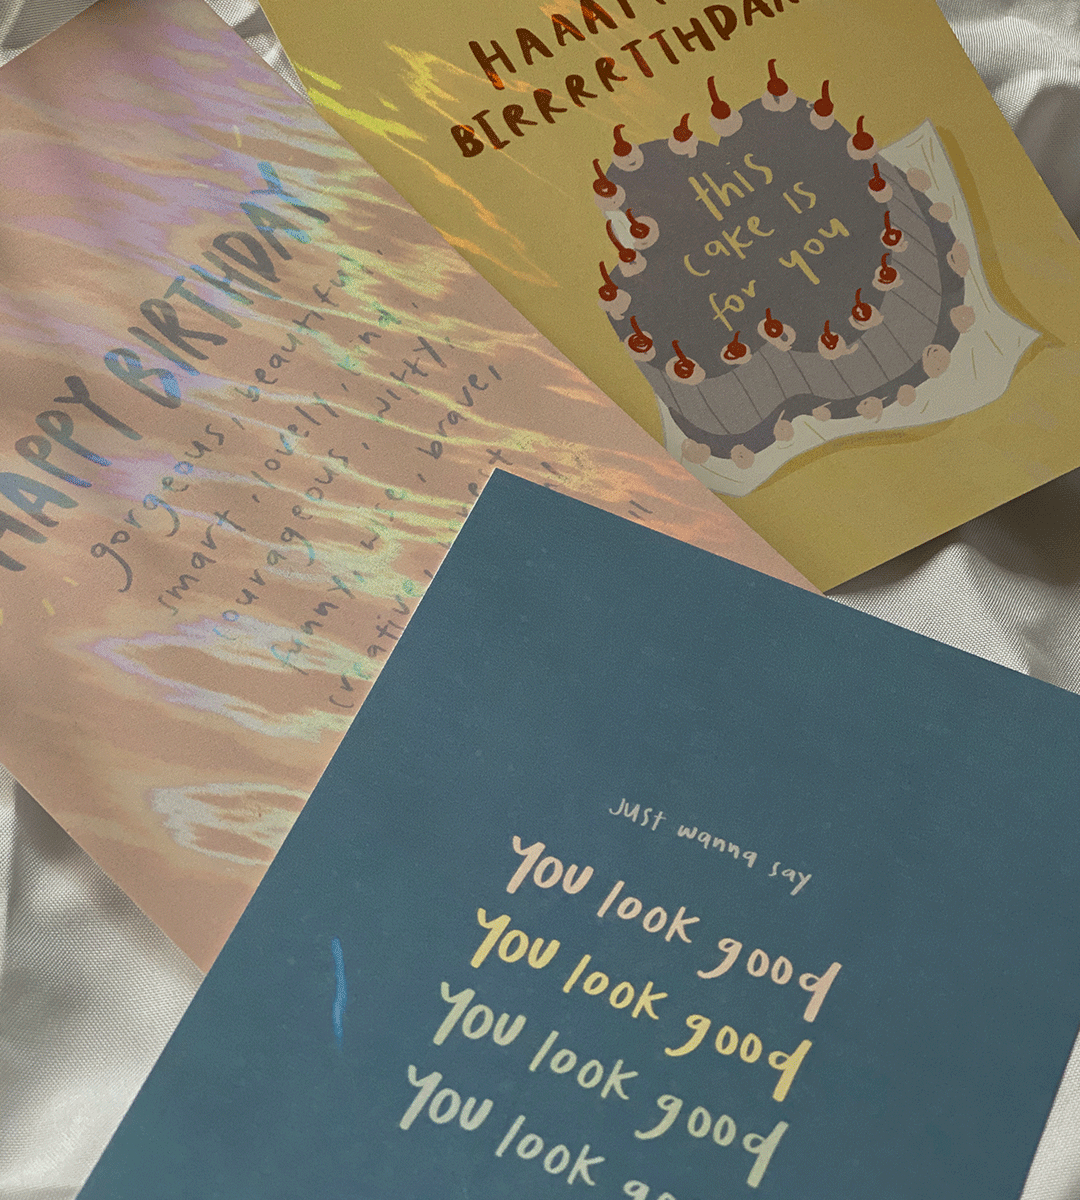 BIRRRRTTHDAY
this
cake is
for you
HAPPY BIRTHDAY
gorgeous, beautiful,
smart, lovely, kind,
courageous, witty,
funny, wise, brave,
creative,
just wanna say
you look good
you look good
you look good
you look